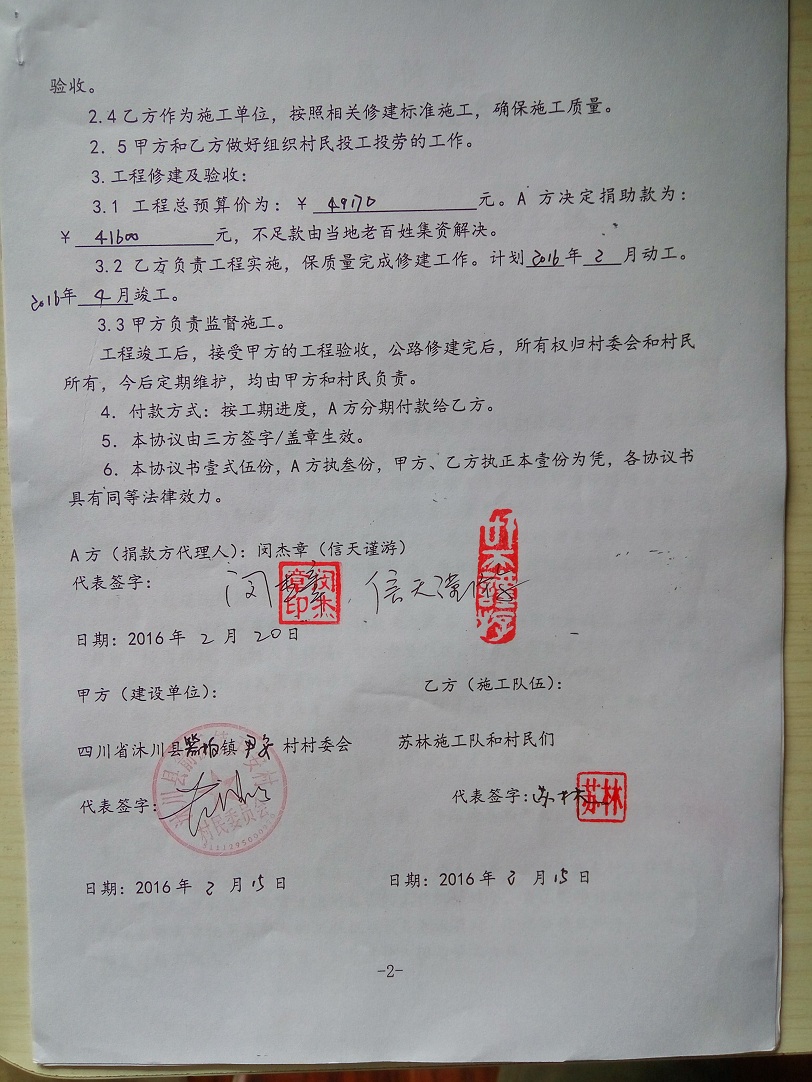 验收。
2.4乙方作为施工单位，按照相关修建标准施工，确保施工质量。
2．5甲方和乙方做好组织村民投工投劳的工作。
3.工程修建及验收：
3.1 工程总预算价为：￥ 49170 元。A 方决定捐助款为：
￥ 41600 元，不足款由当地老百姓集资解决。
3.2 乙方负责工程实施，保质量完成修建工作。计划 2016 年 2 月动工。
2016年 4 月竣工。
3.3甲方负责监督施工。
工程竣工后，接受甲方的工程验收，公路修建完后，所有权归村委会和村民
所有，今后定期维护，均由甲方和村民负责。
4．付款方式：按工期进度，A方分期付款给乙方。
5．本协议由三方签字/盖章生效。
6．本协议书壹式伍份，A方执叁份，甲方、乙方执正本壹份为凭，各协议书
具有同等法律效力。
A方（捐款方代理人）：闵杰章（信天谨游）
代表签字： 闵杰章 信天谨游
闵杰章印
日期：2016 年 2 月 20 日
甲方（建设单位）： 乙方（施工队伍）：
四川省沐川县 镇 村村委会 苏林施工队和村民们
村民委员会
代表签字： 代表签字：苏林
苏林
日期：2016 年 2 月 15 日 日期：2016 年 2 月 15 日
-2-